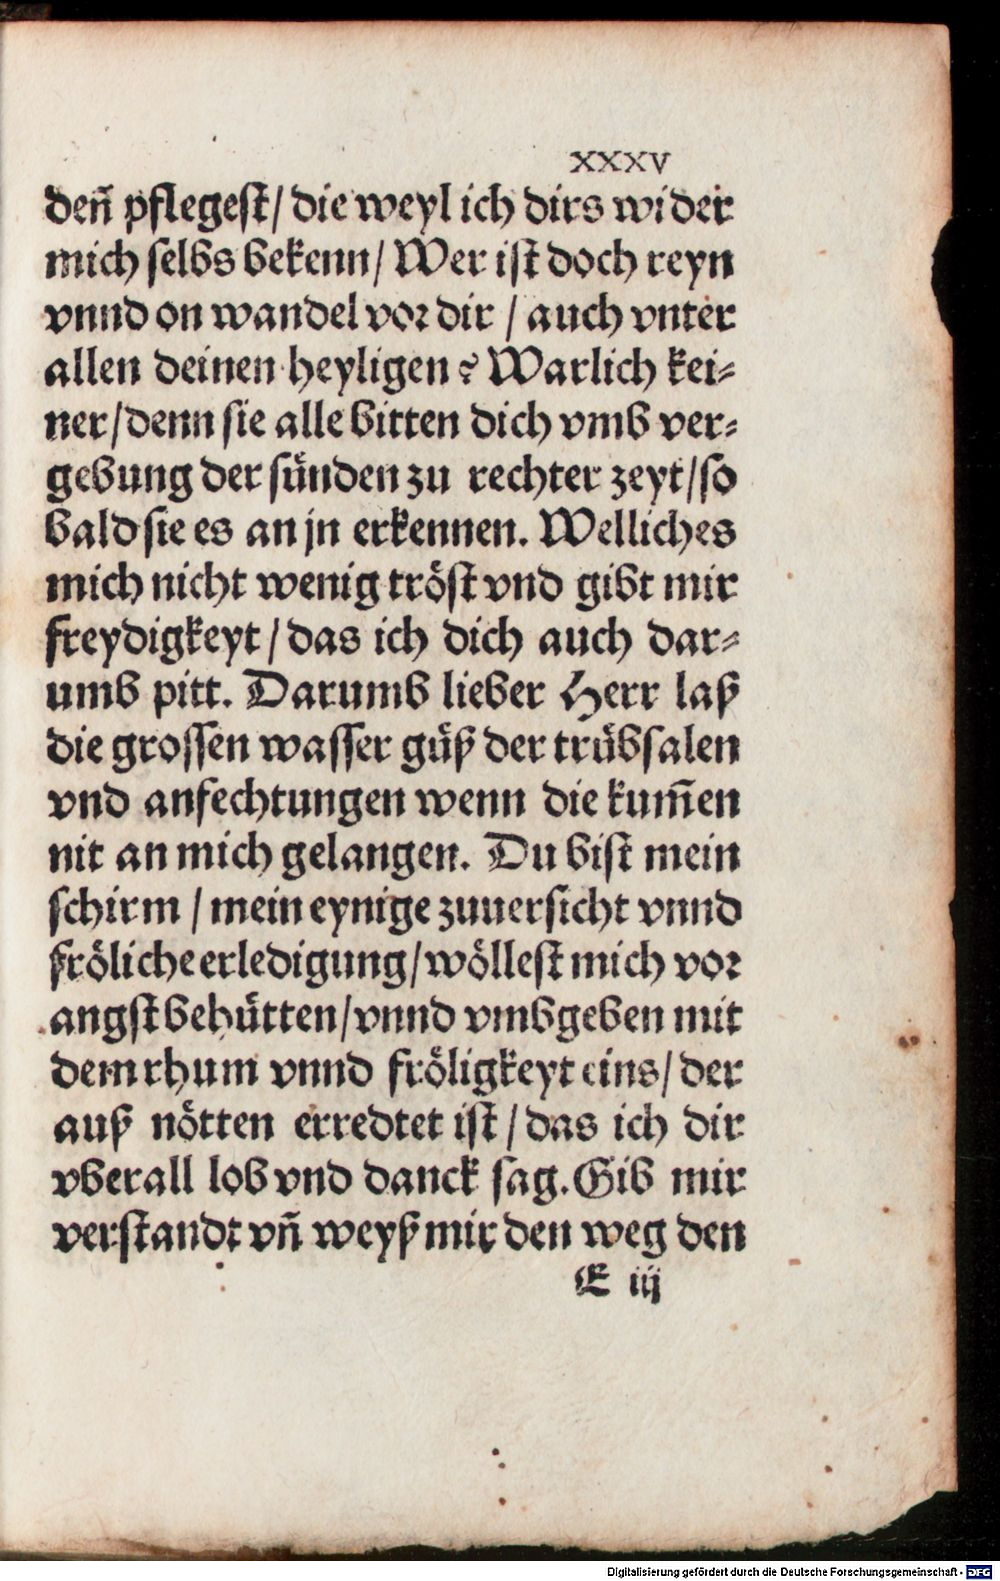 XXXV
deñ pflegest/ die weyl ich dirs wider
mich selbs bekenn/ Wer ist doch reyn
vnnd on wandel vor dir / auch vnter
allen deinen heyligen? Warlich kei-
ner/ denn sie alle bitten dich vmb ver-
gebung der sünden zu rechter zeyt/ so
bald sie es an jn erkennen. Welliches
mich nicht wenig tröst vnd gibt mir
freydigkeyt / das ich dich auch dar-
umb pitt. Darumb lieber Herr laß
die grossen wasser güß der trübsalen
vnd anfechtungen wenn die kum̃en
nit an mich gelangen. Du bist mein
schirm / mein eynige zuuersicht vnnd
fröliche erledigung/ wöllest mich vor
angst behütten/ vnnd vmbgeben mit
dem rhum vnnd fröligkeyt eins/ der
auß nötten erredtet ist / das ich dir
vberall lob vnd danck sag. Gib mir
verstandt vñ weyß mir den weg den
E iij
Digitalisierung gefördert durch die Deutsche Forschungsgemeinschaft - DFG